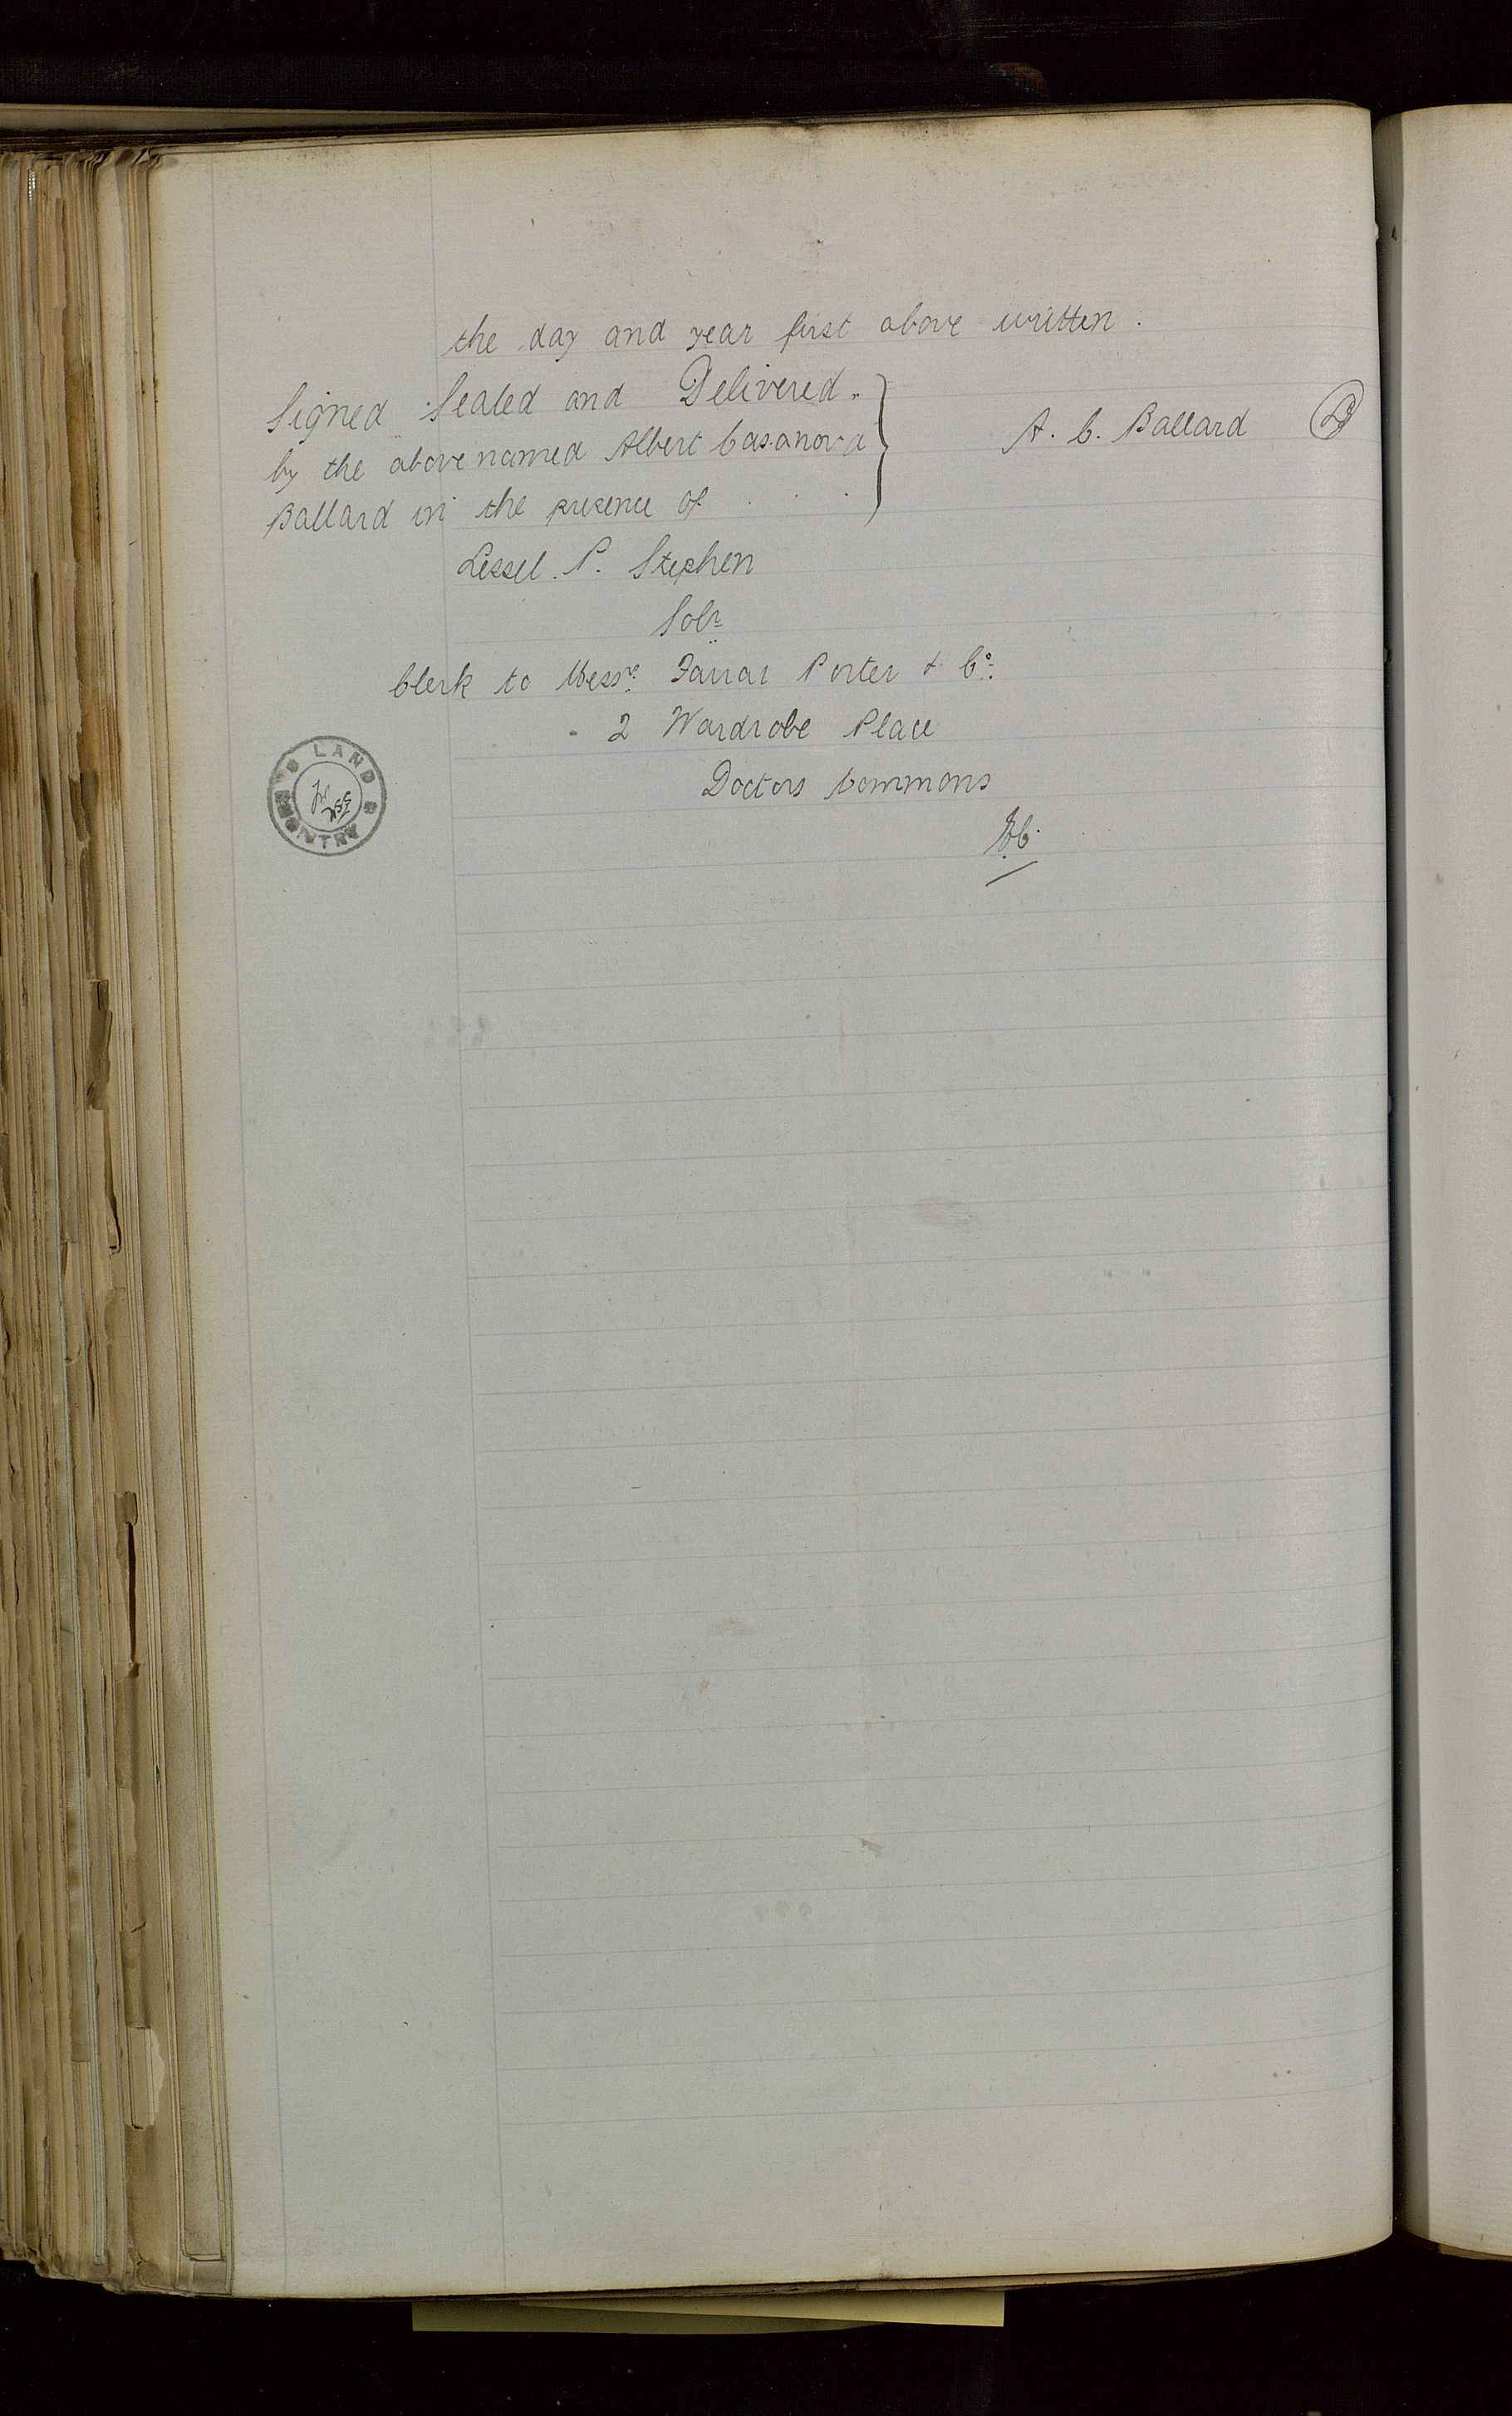 the day and year first above written.
Signed Sealed and Delivered
by the above named Albert Casanova
Ballard in the presence of
A. C. Ballard
Lessel. P. Stephen
Solr
Clerk to Messrs. Farrar Porter & Co.
2 Wardrobe Place
Doctors Commons
LAND REGISTRY